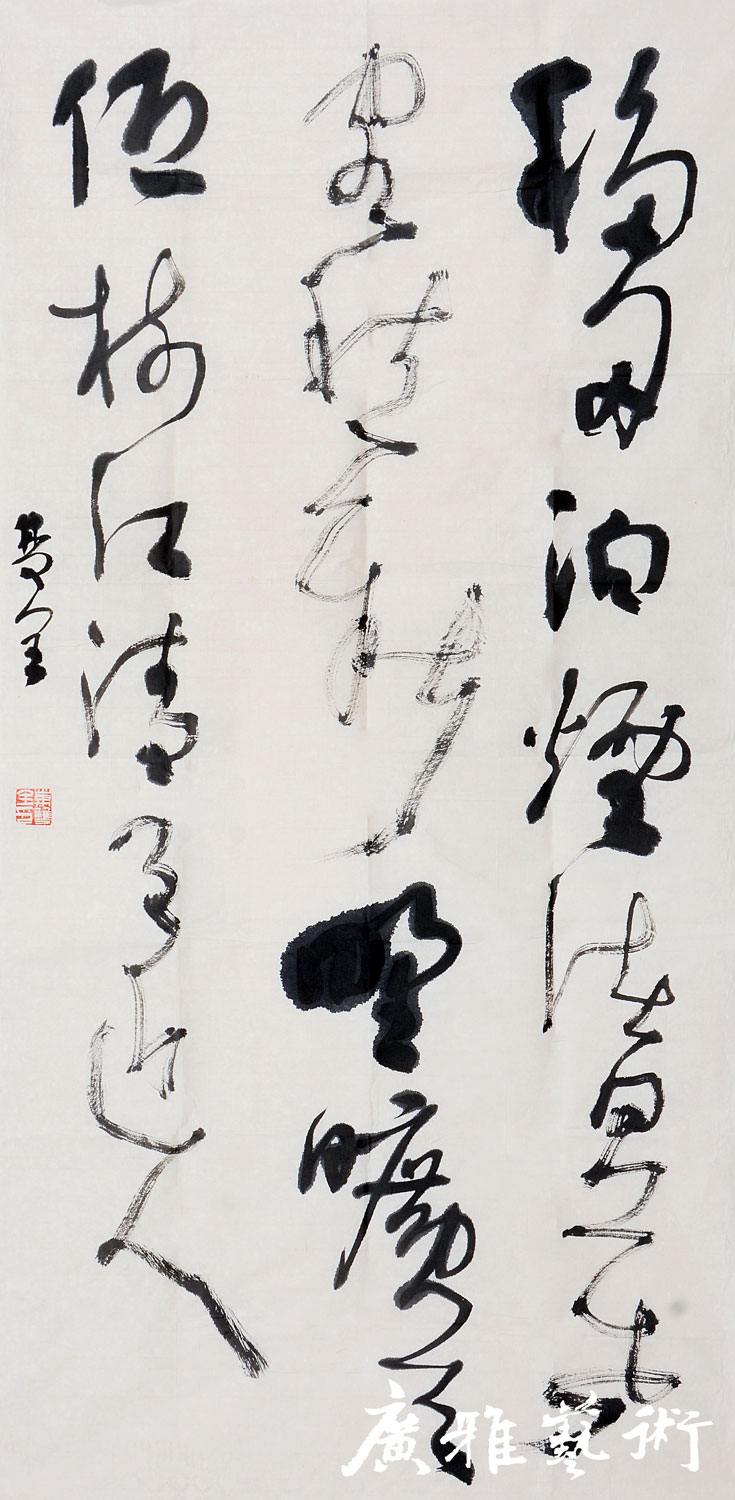 移舟泊煙渚日暮
客愁新野曠天
低樹江清月近人
廣雅藝術